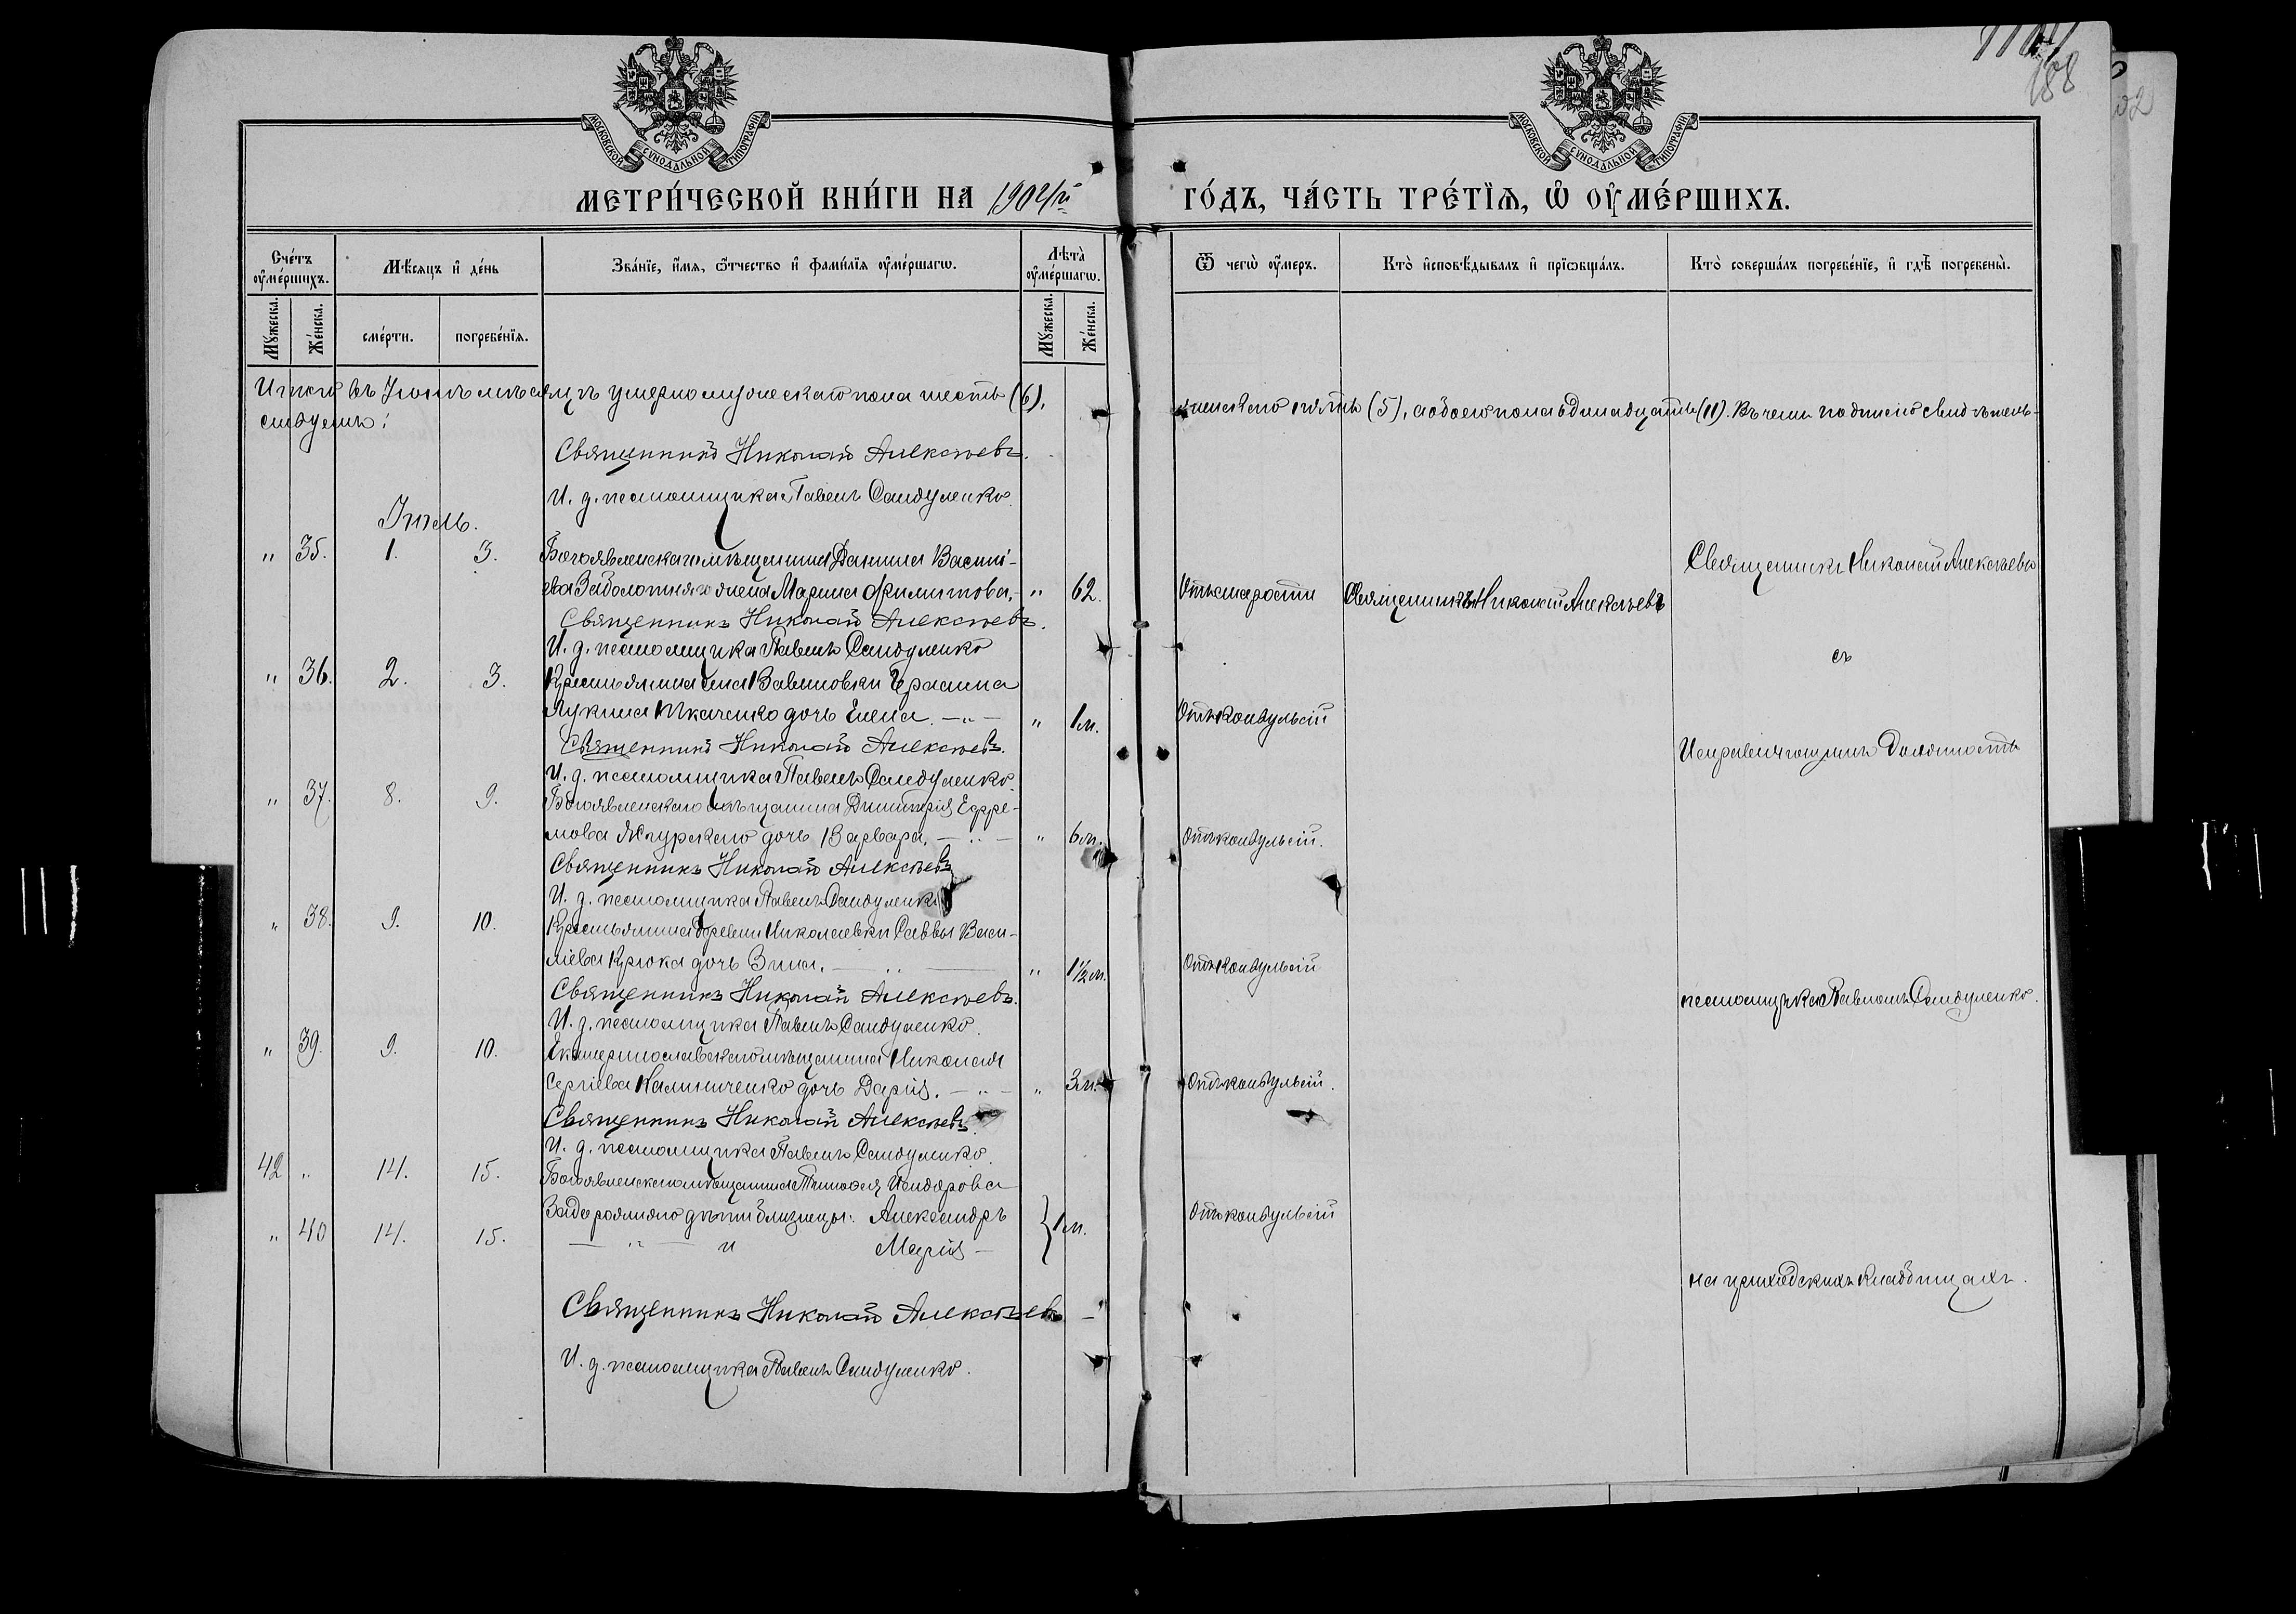 188
МОСКОВСКОЙ СѴНОДАЛЬНОЙ ТИПОГРАФІИ
МОСКОВСКОЙ СѴНОДАЛЬНОЙ ТИПОГРАФІИ
МЕТРИ́ЧЕСКОЙ КНИ́ГИ НА 1904й ГО́ДЪ, ЧА́СТЬ ТРЕ́ТЇѦ, Ѡ҆ ОУ҆МЕ́РШИХЪ.
Сче́тъ оу҆ме́ршихъ.
Мѣ́сѧцъ и҆ де́нь
Зва́нїе, и҆́мѧ, ѻ҆́тчество и҆ фами́лїѧ оу҆ме́ршагѡ.
Лѣ́та оу҆ме́ршагѡ.
Ѿ чегѡ̀ оу҆́меръ.
Кто̀ и҆сповѣ́дывалъ и҆ прїѡбща́лъ.
Кто̀ соверша́лъ погребе́нїе, и҆ гдѣ̀ погребены̀.
Мꙋ́жеска.
Же́нска.
сме́рти.
погребе́нїѧ.
Мꙋ́жеска.
Же́нска.
Итого въ Іюнѣ мѣсяцѣ умерло мужескаго пола шесть (6), женскаго пять (5), а обоего пола одинадцать (11). Въ чемъ подписью свидѣтель-
ствуемъ:
Священникъ Николай Алексѣевъ.
И. д. псаломщика Павелъ Сандуленко.
Іюль.
" 35. 1. 3. Богоявленскаго мѣщанина Даніила Василі-
ева Заболотняго жена Марина Филиппова. " 62. Отъ старости Священникъ Николай Алексѣевъ
Священникъ Николай Алексѣевъ
Священникъ Николай Алексѣевъ.
И. д. псаломщика Павелъ Сандуленко
съ
" 36. 2. 3. Крестьянина села Вавиловки Герасима
Лукина Ткаченко дочь Елена. — " — " 1 м. Отъ конвульсій
Священникъ Николай Алексѣевъ.
Исправляющимъ должность
И. д. псаломщика Павелъ Сандуленко.
" 37. 8. 9. Богоявленскаго мѣщанина Димитрія Ефре-
мова дочь Варвара. — " — " 6 м. Отъ конвульсій.
Священникъ Николай Алексѣевъ
И. д. псаломщика Павелъ Сандуленко
" 38. 9. 10. Крестьянина деревни Николаевки Саввы Васи-
ліева Крюка дочь Зина. — " — " 1 1/2 м. Отъ конвульсій
Священникъ Николай Алексѣевъ.
псаломщика Павломъ Сандуленко.
И. д. псаломщика Павелъ Сандуленко.
" 39. 9. 10. Екатеринославскаго мѣщанина Николая
Сергіева Калиниченко дочь Дарія. — " — " 3 м. Отъ конвульсій.
Священникъ Николай Алексѣевъ.
И. д. псаломщика Павелъ Сандуленко.
42 " 14. 15. Богоявленскаго мѣщанина Тимоѳея Исидорова
дѣти близнецы: Александръ } 1 м. Отъ конвульсій
" 40 14. 15. — " — и Марія —
на приходскихъ кладбищахъ.
Священникъ Николай Алексѣевъ
И. д. псаломщика Павелъ Сандуленко.